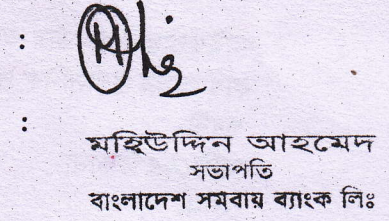 :
:
মহিউদ্দিন আহমেদ
সভাপতি
বাংলাদেশ সমবায় ব্যাংক লিঃ